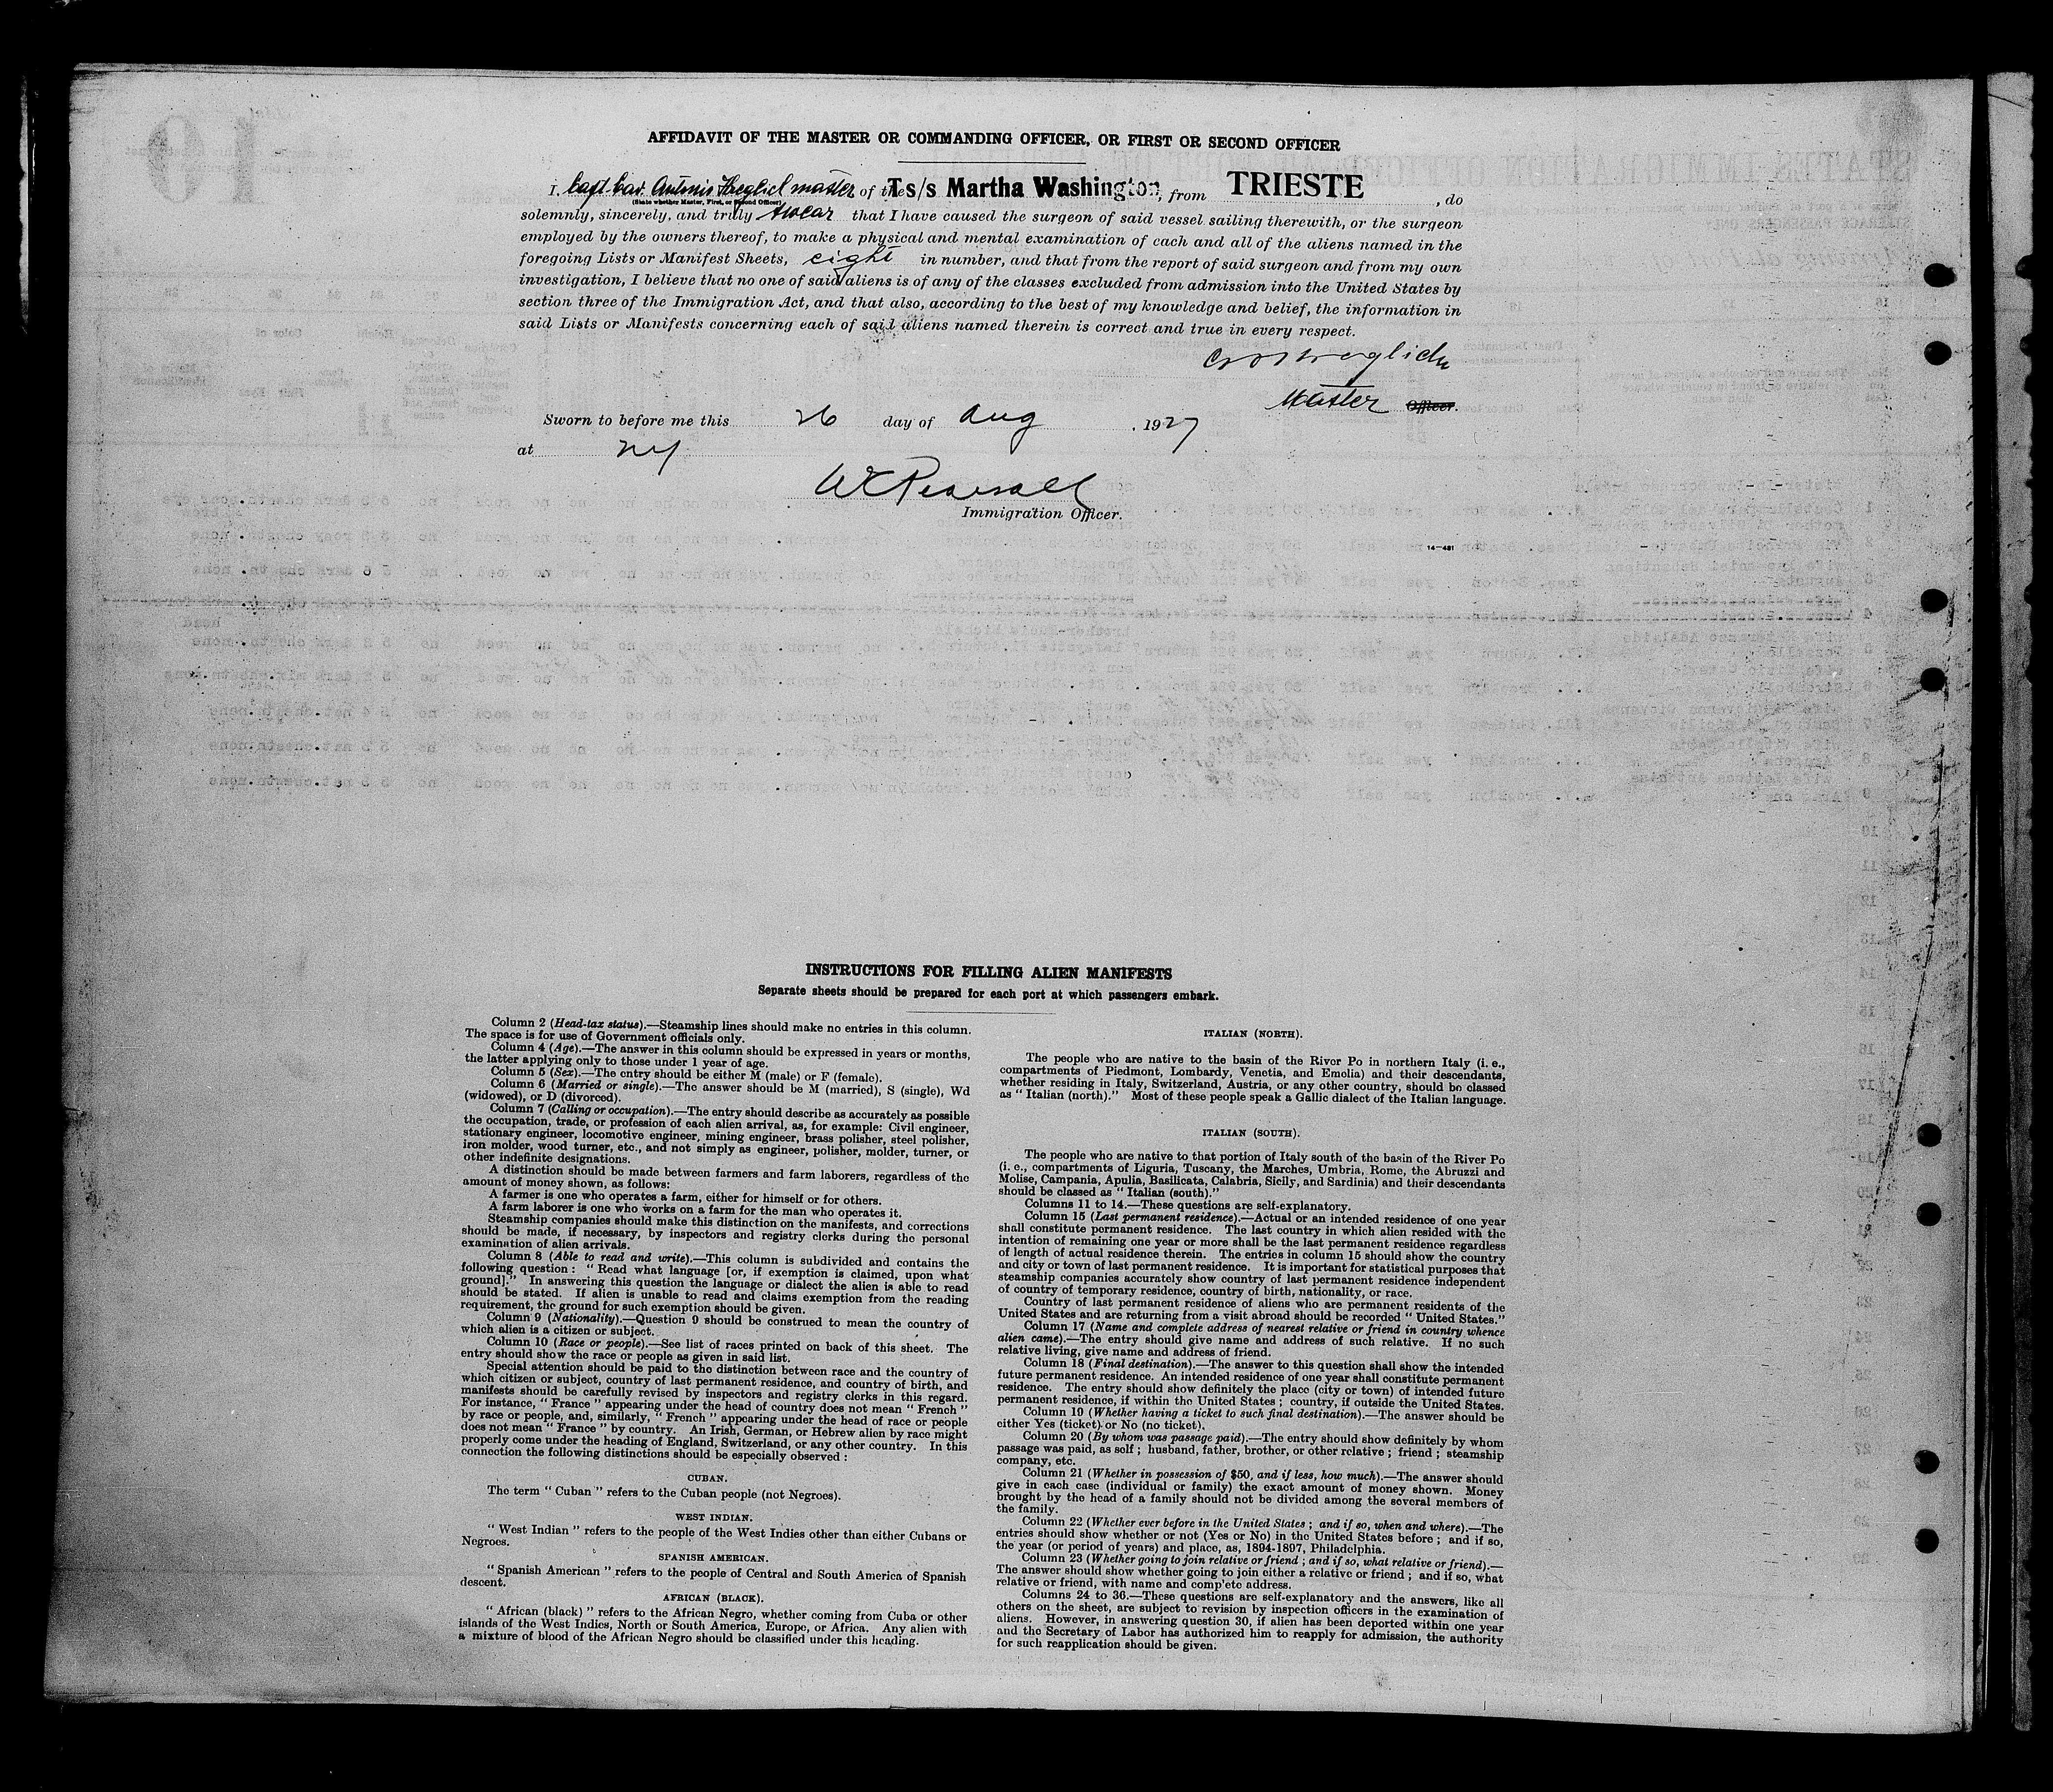 AFFIDAVIT OF THE MASTER OR COMMANDING OFFICER, OR FIRST OR SECOND OFFICER
I, Capt. Cav. Antonio master of the T s/s Martha Washington, from TRIESTE, do
(State whether Master, First, or Second Officer)
solemnly, sincerely, and truly swear that I have caused the surgeon of said vessel sailing therewith, or the surgeon
employed by the owners thereof, to make a physical and mental examination of each and all of the aliens named in the
foregoing Lists or Manifest Sheets, eight in number, and that from the report of said surgeon and from my own
investigation, I believe that no one of said aliens is of any of the classes excluded from admission into the United States by
section three of the Immigration Act, and that also, according to the best of my knowledge and belief, the information in
said Lists or Manifests concerning each of said aliens named therein is correct and true in every respect.
Master Officer.
Sworn to before me this 26 day of Aug, 1927
at NY
WC Pearsall
Immigration Officer.
14—481
INSTRUCTIONS FOR FILLING ALIEN MANIFESTS
Separate sheets should be prepared for each port at which passengers embark.
Column 2 (Head-tax status).—Steamship lines should make no entries in this column.
The space is for use of Government officials only.
Column 4 (Age).—The answer in this column should be expressed in years or months,
the latter applying only to those under 1 year of age.
Column 5 (Sex).—The entry should be either M (male) or F (female).
Column 6 (Married or single).—The answer should be M (married), S (single), Wd
(widowed), or D (divorced).
Column 7 (Calling or occupation).—The entry should describe as accurately as possible
the occupation, trade, or profession of each alien arrival, as, for example: Civil engineer,
stationary engineer, locomotive engineer, mining engineer, brass polisher, steel polisher,
iron molder, wood turner, etc., and not simply as engineer, polisher, molder, turner, or
other indefinite designations.
A distinction should be made between farmers and farm laborers, regardless of the
amount of money shown, as follows:
A farmer is one who operates a farm, either for himself or for others.
A farm laborer is one who works on a farm for the man who operates it.
Steamship companies should make this distinction on the manifests, and corrections
should be made, if necessary, by inspectors and registry clerks during the personal
examination of alien arrivals.
Column 8 (Able to read and write).—This column is subdivided and contains the
following question: "Read what language [or, if exemption is claimed, upon what
ground]." In answering this question the language or dialect the alien is able to read
should be stated. If alien is unable to read and claims exemption from the reading
requirement, the ground for such exemption should be given.
Column 9 (Nationality).—Question 9 should be construed to mean the country of
which alien is a citizen or subject.
Column 10 (Race or people).—See list of races printed on back of this sheet. The
entry should show the race or people as given in said list.
Special attention should be paid to the distinction between race and the country of
which citizen or subject, country of last permanent residence, and country of birth, and
manifests should be carefully revised by inspectors and registry clerks in this regard.
For instance, "France" appearing under the head of country does not mean "French"
by race or people, and, similarly, "French" appearing under the head of race or people
does not mean "France" by country. An Irish, German, or Hebrew alien by race might
properly come under the heading of England, Switzerland, or any other country. In this
connection the following distinctions should be especially observed:
CUBAN.
The term "Cuban" refers to the Cuban people (not Negroes).
WEST INDIAN.
"West Indian" refers to the people of the West Indies other than either Cubans or
Negroes.
SPANISH AMERICAN.
"Spanish American" refers to the people of Central and South America of Spanish
descent.
AFRICAN (BLACK).
"African (black)" refers to the African Negro, whether coming from Cuba or other
islands of the West Indies, North or South America, Europe, or Africa. Any alien with
a mixture of blood of the African Negro should be classified under this heading.
ITALIAN (NORTH).
The people who are native to the basin of the River Po in northern Italy (i. e.,
compartments of Piedmont, Lombardy, Venetia, and Emolia) and their descendants,
whether residing in Italy, Switzerland, Austria, or any other country, should be classed
as "Italian (north)." Most of these people speak a Gallic dialect of the Italian language.
ITALIAN (SOUTH).
The people who are native to that portion of Italy south of the basin of the River Po
(i. e., compartments of Liguria, Tuscany, the Marches, Umbria, Rome, the Abruzzi and
Molise, Campania, Apulia, Basilicata, Calabria, Sicily, and Sardinia) and their descendants
should be classed as "Italian (south)."
Columns 11 to 14.—These questions are self-explanatory.
Column 15 (Last permanent residence).—Actual or an intended residence of one year
shall constitute permanent residence. The last country in which alien resided with the
intention of remaining one year or more shall be the last permanent residence regardless
of length of actual residence therein. The entries in column 15 should show the country
and city or town of last permanent residence. It is important for statistical purposes that
steamship companies accurately show country of last permanent residence independent
of country of temporary residence, country of birth, nationality, or race.
Country of last permanent residence of aliens who are permanent residents of the
United States and are returning from a visit abroad should be recorded "United States."
Column 17 (Name and complete address of nearest relative or friend in country whence
alien came).—The entry should give name and address of such relative. If no such
relative living, give name and address of friend.
Column 18 (Final destination).—The answer to this question shall show the intended
future permanent residence. An intended residence of one year shall constitute permanent
residence. The entry should show definitely the place (city or town) of intended future
permanent residence, if within the United States; country, if outside the United States.
Column 19 (Whether having a ticket to such final destination).—The answer should be
either Yes (ticket) or No (no ticket).
Column 20 (By whom was passage paid).—The entry should show definitely by whom
passage was paid, as self; husband, father, brother, or other relative; friend; steamship
company, etc.
Column 21 (Whether in possession of $50, and if less, how much).—The answer should
give in each case (individual or family) the exact amount of money shown. Money
brought by the head of a family should not be divided among the several members of
the family.
Column 22 (Whether ever before in the United States; and if so, when and where).—The
entries should show whether or not (Yes or No) in the United States before; and if so,
the year (or period of years) and place, as, 1894-1897, Philadelphia.
Column 23 (Whether going to join relative or friend; and if so, what relative or friend).—
The answer should show whether going to join either a relative or friend; and if so, what
relative or friend, with name and complete address.
Columns 24 to 36.—These questions are self-explanatory and the answers, like all
others on the sheet, are subject to revision by inspection officers in the examination of
aliens. However, in answering question 30, if alien has been deported within one year
and the Secretary of Labor has authorized him to reapply for admission, the authority
for such reapplication should be given.